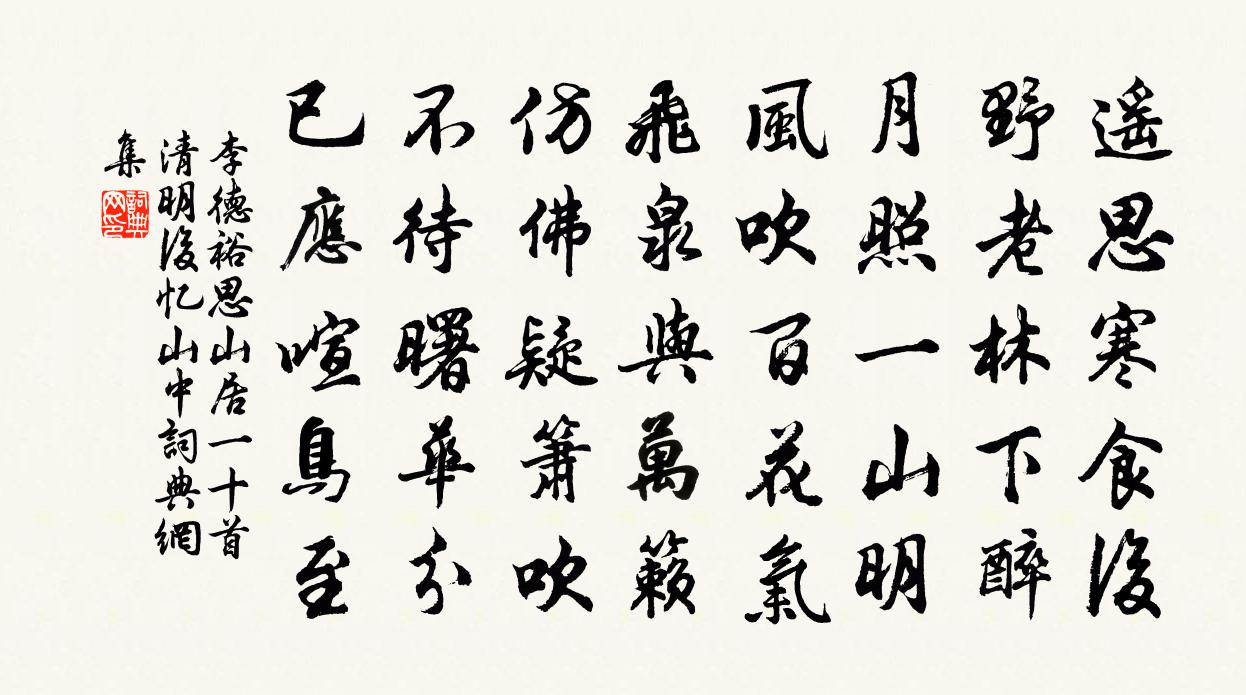 遥思寒食後
野老林下醉
月照一山明
風吹百花氣
飛泉與萬籟
仿佛疑簫吹
不待曙華分
已應喧鳥至
李德裕思山居一十首
清明後忆山中詞典網
集
詞典网印